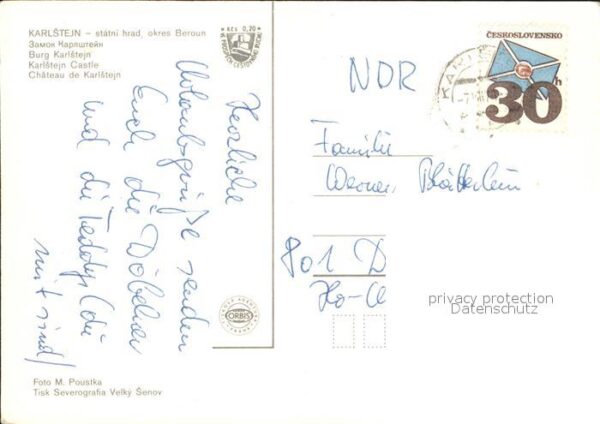 KARLŠTEJN – státní hrad, okres Beroun
Замок Карлштейн
Burg Karlštejn
Karlštejn Castle
Château de Karlštejn
KČS 0,20
ČESKOSLOVENSKO
30
h
NDR
Herzliche
Urlaubsgrüße senden
Euch die Döbelner
und die Teddys (die
mit sind)
Familie
Werner
801 D
privacy protection
Datenschutz
ORBIS
Foto M. Poustka
Tisk Severografia Velký Šenov